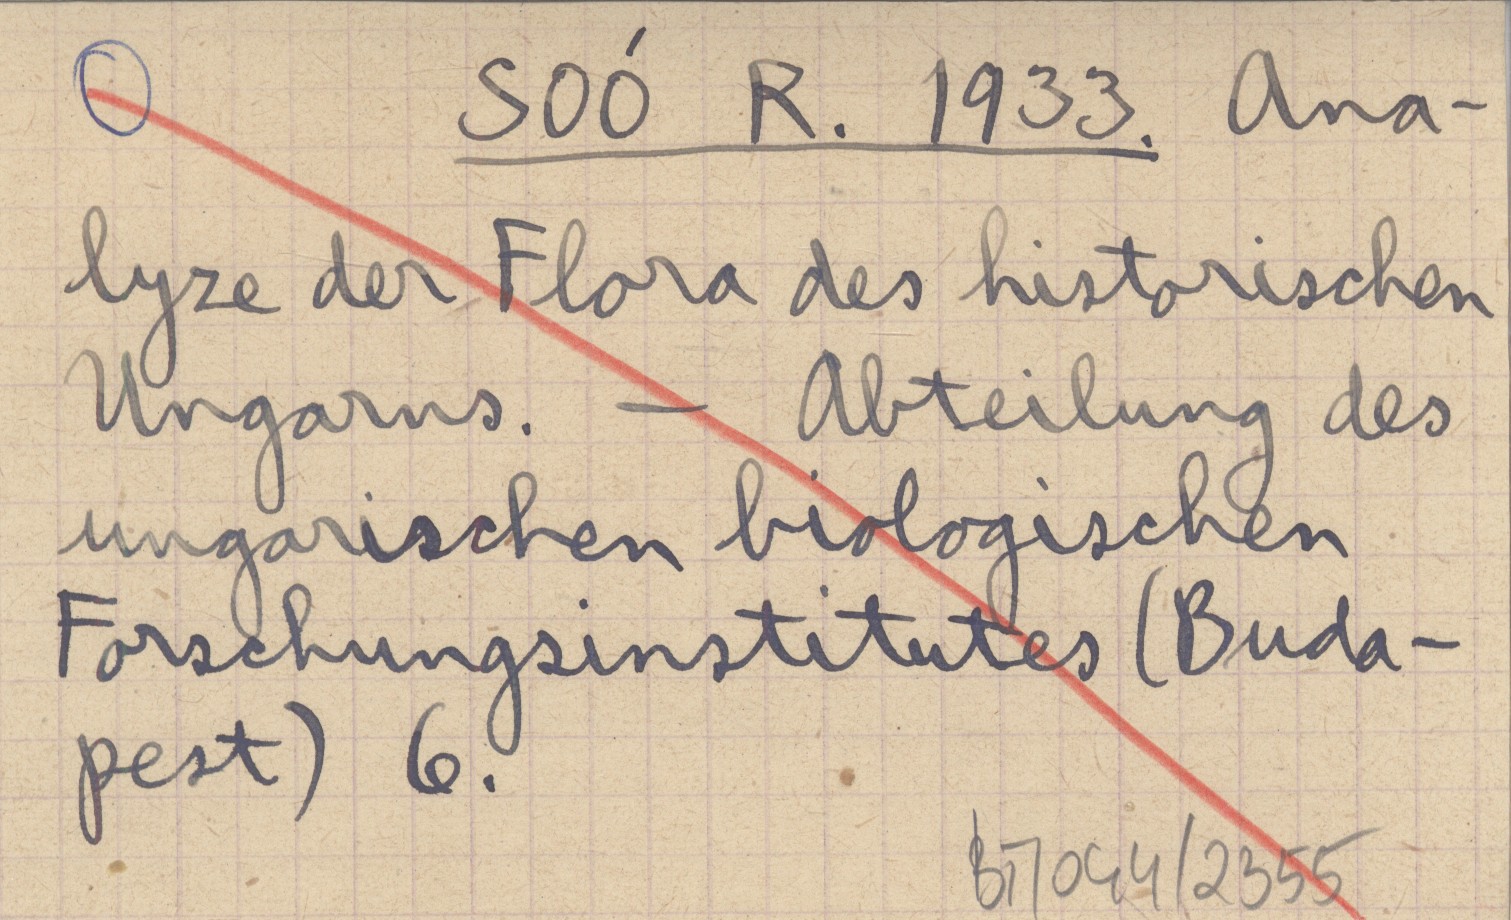 SOÓ R. 1933. Ana-
lyze der Flora des historischen
Ungarns. — Abteilung des
ungarischen biologischen
Forschungsinstitutes (Buda-
pest) 6.
BT/044/2355